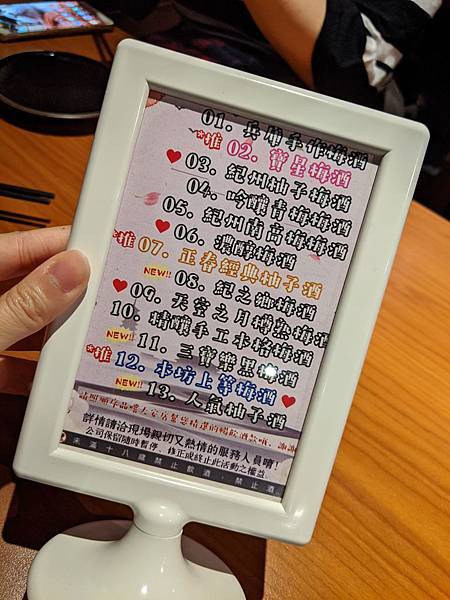 01. 兵庫手作梅酒
*推 02. 寶星梅酒
♥ 03. 紀州柚子梅酒
04. 吟釀青梅梅酒
05. 紀州南高梅梅酒
♥ 06. 濃醇梅酒
*推 07. 正春經典柚子酒
NEW!! 08. 紀之鄉梅酒
♥ 09. 天空之月樽熟梅酒
10. 精釀手工本格梅酒
NEW!! 11. 三寶樂黑梅酒
*推 12. 本坊上等梅酒 ♥
NEW!! 13. 人氣柚子酒
詳情請洽現場親切又熱情的服務人員唷!
公司保留隨時暫停、修正或終止此活動之權益
未滿十八歲禁止飲酒．禁止酒